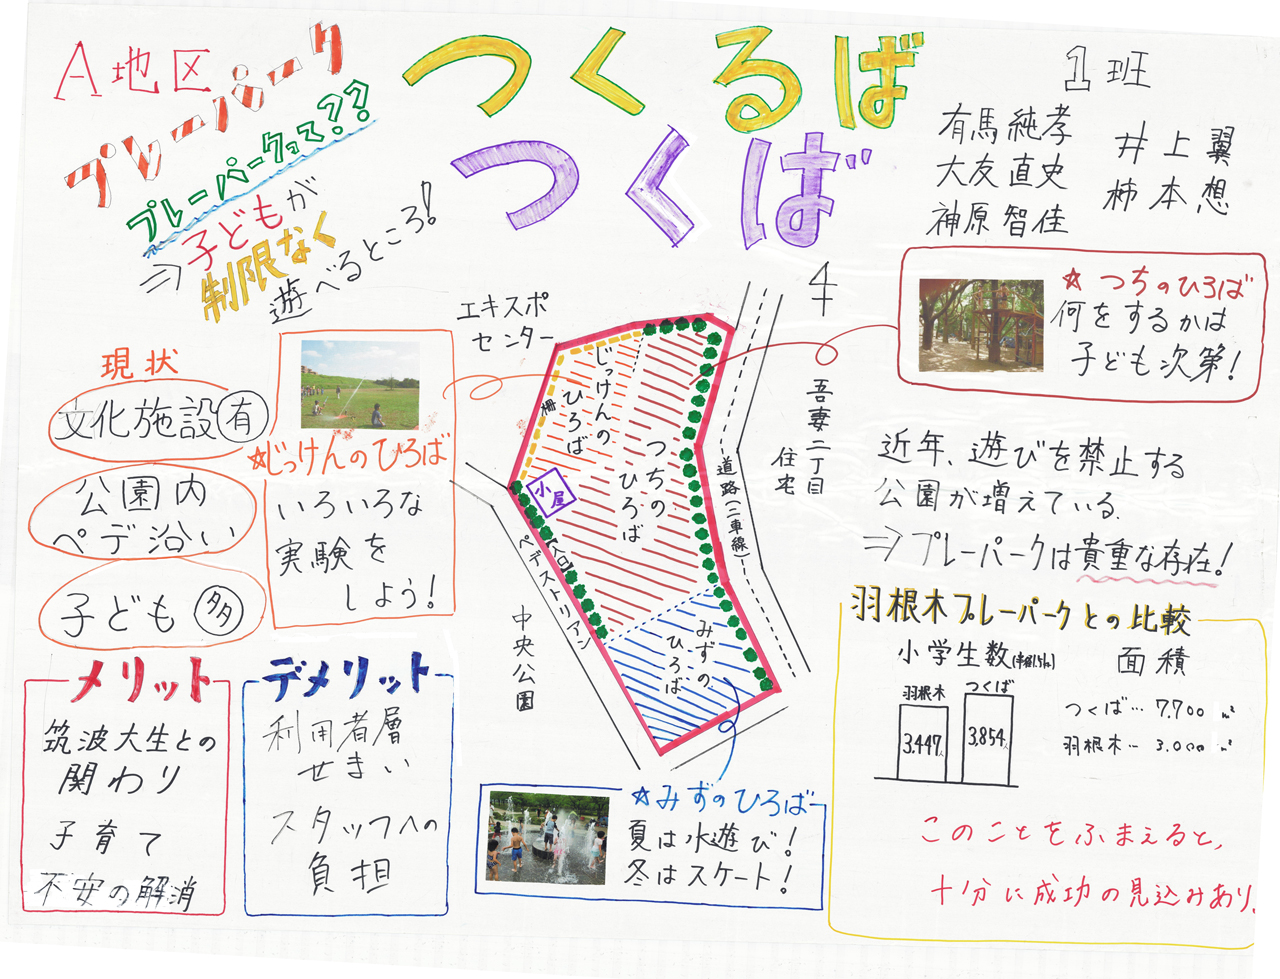 A地区
プレーパーク
プレーパークって??
⇒子どもが
制限なく
遊べるところ!
つくるば
つくば
1班
有馬純孝
大友直史
神原智佳
井上翼
柿本想
☆つちのひろば
何をするかは
子ども次第!
現状
文化施設有
公園内
ペデ沿い
子ども多
☆じっけんのひろば
いろいろな
実験を
しよう!
エキスポ
センター
4
じっけんの
ひろば
柵
つちの
ひろば
小屋
【入口】
ペデストリアン
中央公園
みずの
ひろば
道路(二車線)
吾妻二丁目
住宅
近年、遊びを禁止する
公園が増えている。
⇒プレーパークは貴重な存在!
羽根木プレーパークとの比較
小学生数
羽根木
3,447人
つくば
3,854人
面積
つくば… 7,700 m²
羽根木… 3,000 m²
このことをふまえると、
十分に成功の見込みあり。
メリット
筑波大生との
関わり
子育て
不安の解消
デメリット
利用者層
せまい
スタッフへの
負担
☆みずのひろば
夏は水遊び!
冬はスケート!